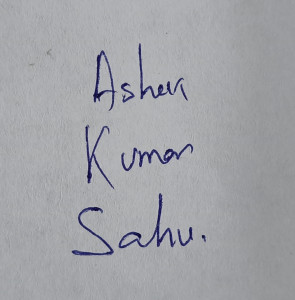 Ashok
Kumar
Sahu.